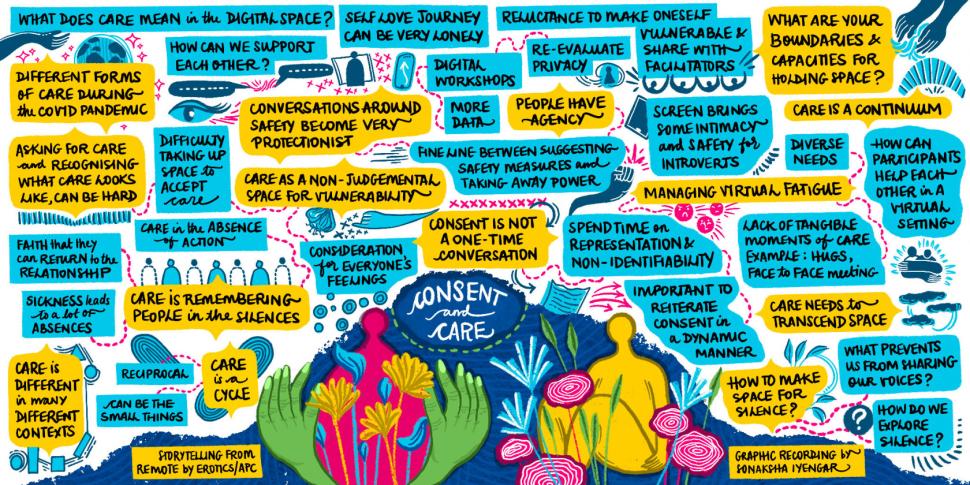 WHAT DOES CARE MEAN in the DIGITAL SPACE?
SELF LOVE JOURNEY
CAN BE VERY LONELY
RELUCTANCE TO MAKE ONESELF
VULNERABLE &
SHARE WITH
FACILITATORS
WHAT ARE YOUR
BOUNDARIES &
CAPACITIES FOR
HOLDING SPACE?
HOW CAN WE SUPPORT
EACH OTHER?
DIGITAL
WORKSHOPS
RE-EVALUATE
PRIVACY
DIFFERENT FORMS
OF CARE DURING
the COVID PANDEMIC
CONVERSATIONS AROUND
SAFETY BECOME VERY
PROTECTIONIST
MORE
DATA
PEOPLE HAVE
AGENCY
SCREEN BRINGS
SOME INTIMACY
and SAFETY for
INTROVERTS
CARE IS A CONTINUUM
ASKING FOR CARE
and RECOGNISING
WHAT CARE LOOKS
LIKE, CAN BE HARD
DIFFICULTY
TAKING UP
SPACE to
ACCEPT
care
FINE LINE BETWEEN SUGGESTING
SAFETY MEASURES and
TAKING AWAY POWER
DIVERSE
NEEDS
HOW CAN
PARTICIPANTS
HELP EACH
OTHER in A
VIRTUAL
SETTING
CARE AS A NON-JUDGEMENTAL
SPACE FOR VULNERABILITY
MANAGING VIRTUAL FATIGUE
FAITH that they
can RETURN to the
RELATIONSHIP
CARE in the ABSENCE
of ACTION
CONSIDERATION
for EVERYONE'S
FEELINGS
CONSENT IS NOT
A ONE-TIME
CONVERSATION
SPEND TIME on
REPRESENTATION &
NON-IDENTIFIABILITY
LACK OF TANGIBLE
MOMENTS of CARE
EXAMPLE: HUGS,
FACE to FACE meeting
SICKNESS leads
to a lot of
ABSENCES
CARE is REMEMBERING
PEOPLE in the SILENCES
CONSENT
and
CARE
IMPORTANT to
REITERATE
CONSENT in
a DYNAMIC
MANNER
CARE NEEDS to
TRANSCEND SPACE
CARE IS
DIFFERENT
in MANY
DIFFERENT
CONTEXTS
RECIPROCAL
CARE
is a
CYCLE
CAN BE THE
SMALL THINGS
HOW TO MAKE
SPACE FOR
SILENCE?
WHAT PREVENTS
US FROM SHARING
OUR VOICES?
?
HOW DO WE
EXPLORE
SILENCE?
STORYTELLING FROM
REMOTE BY EROTICS/APC
GRAPHIC RECORDING by
SONAKSHA IYENGAR